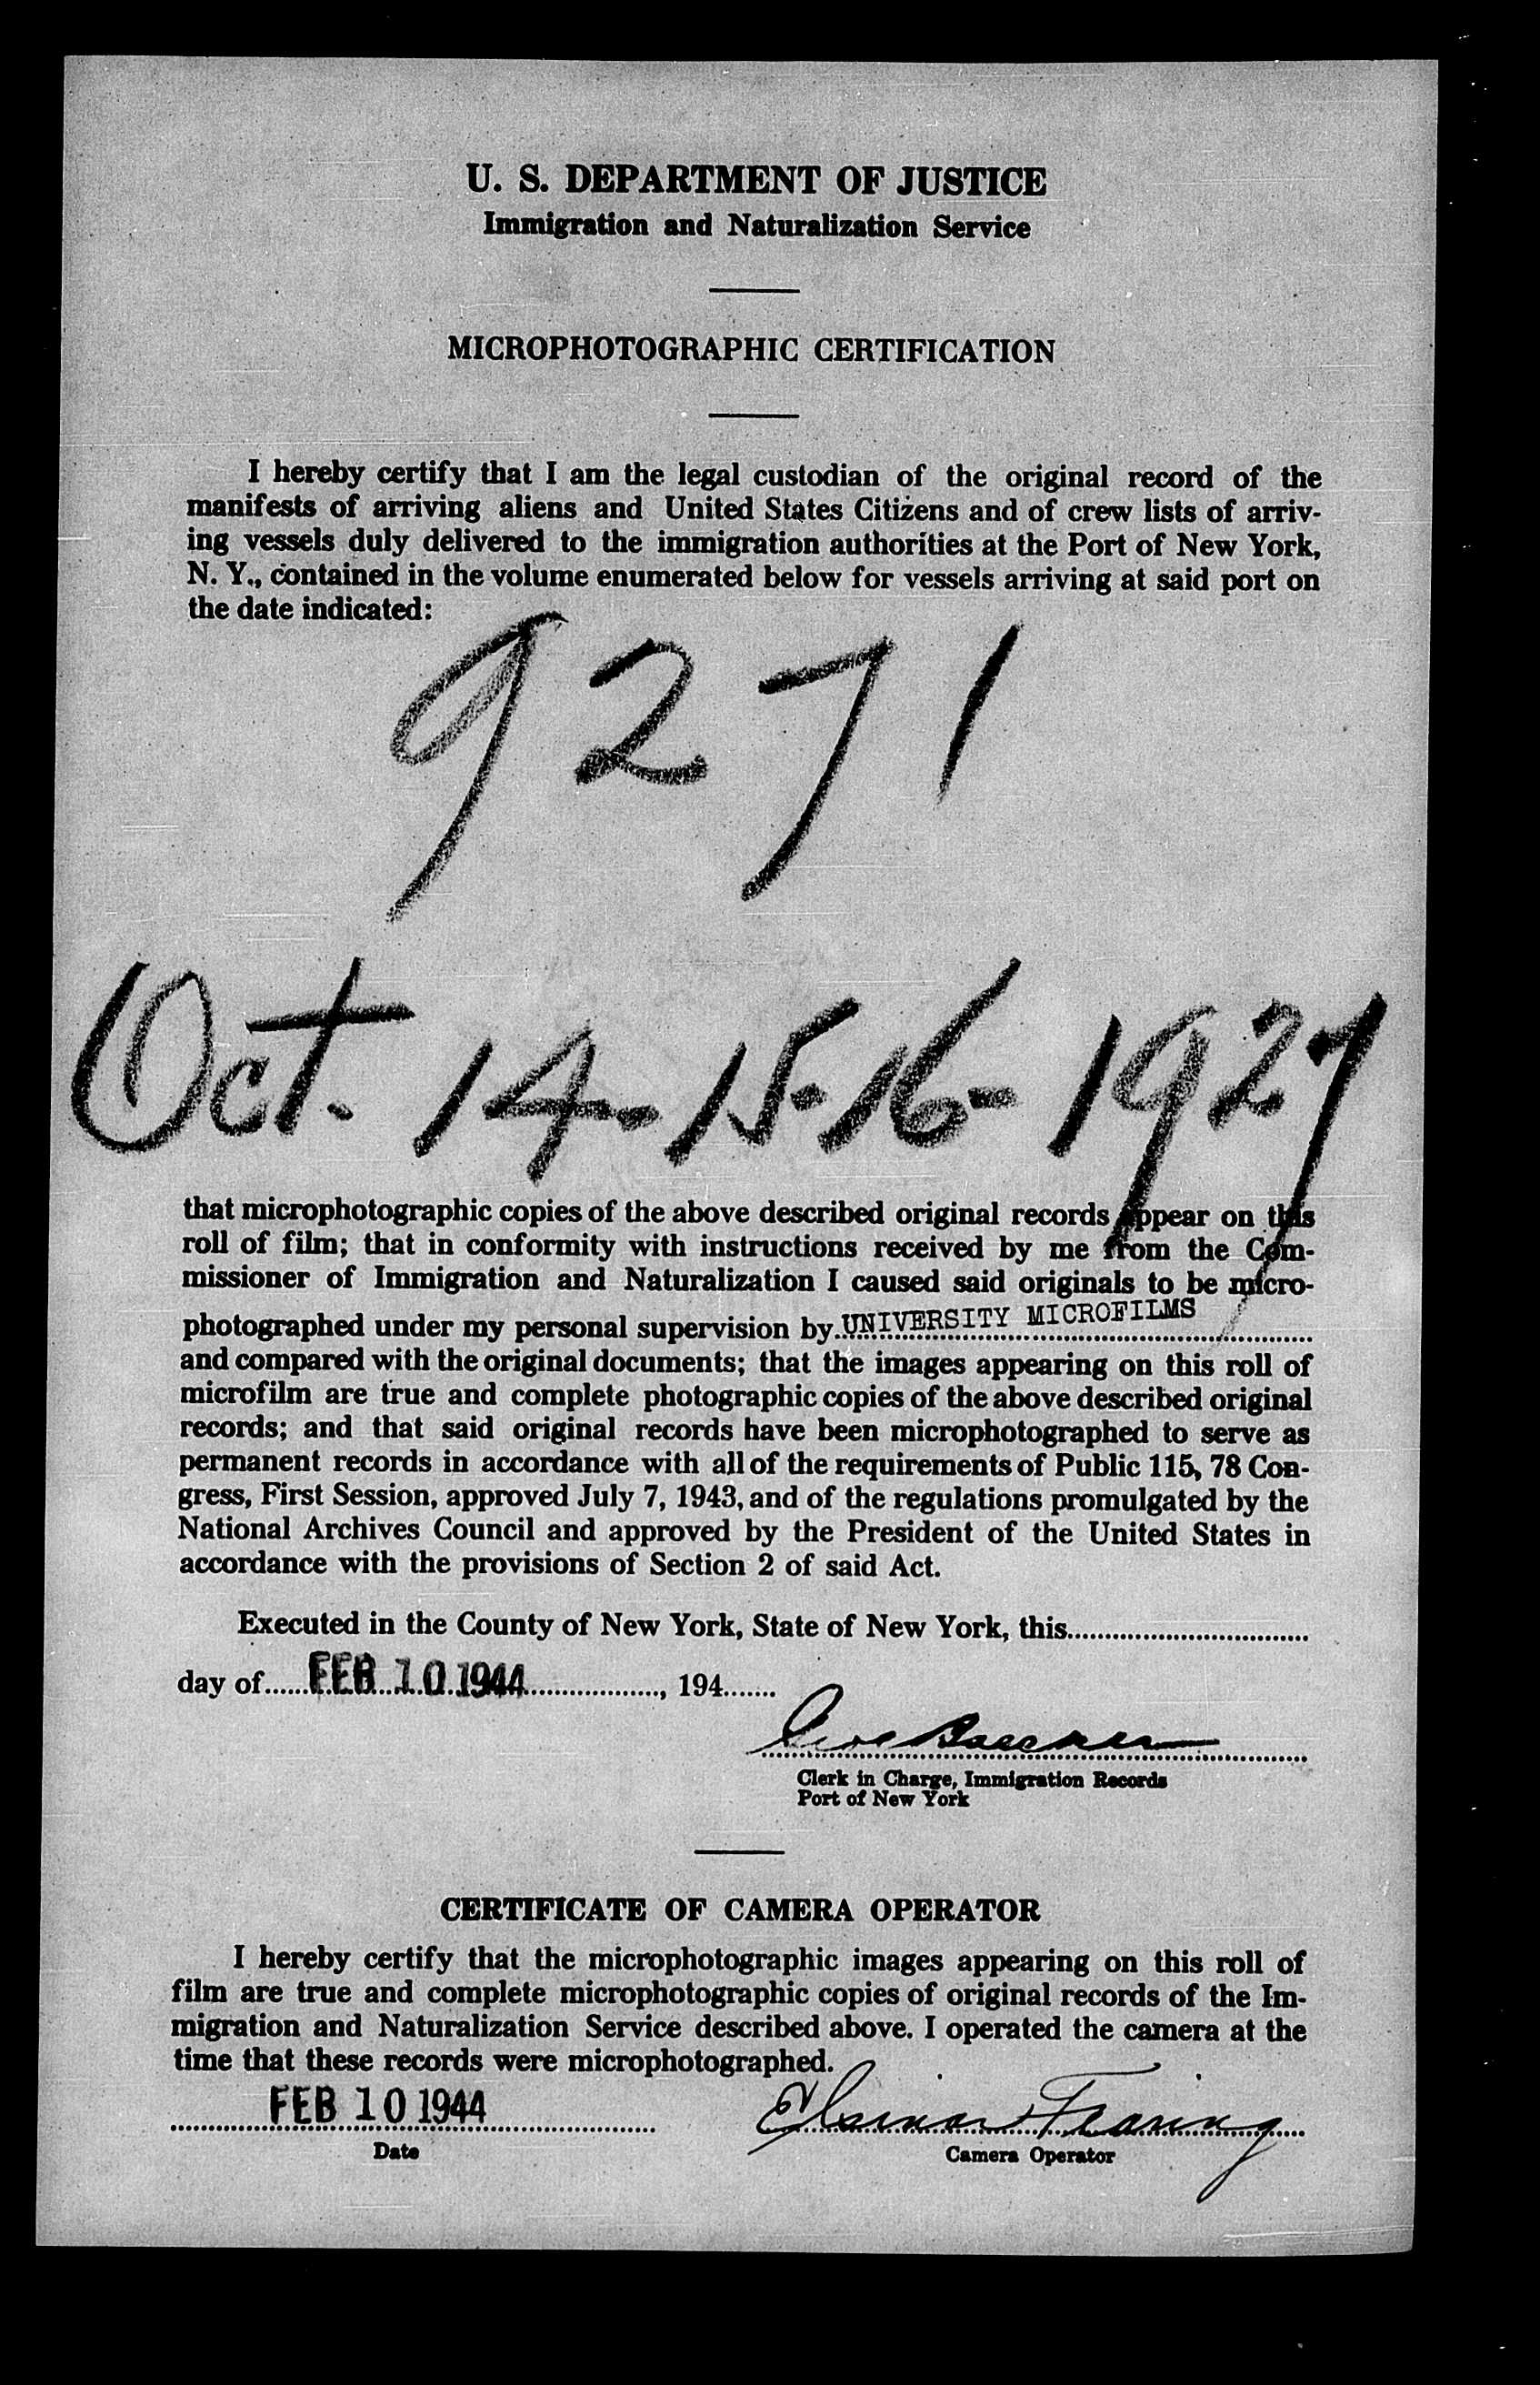 U. S. DEPARTMENT OF JUSTICE
Immigration and Naturalization Service
MICROPHOTOGRAPHIC CERTIFICATION
I hereby certify that I am the legal custodian of the original record of the
manifests of arriving aliens and United States Citizens and of crew lists of arriv-
ing vessels duly delivered to the immigration authorities at the Port of New York,
N. Y., contained in the volume enumerated below for vessels arriving at said port on
the date indicated:
9271
Oct. 14-15-16-1927
that microphotographic copies of the above described original records appear on this
roll of film; that in conformity with instructions received by me from the Com-
missioner of Immigration and Naturalization I caused said originals to be micro-
photographed under my personal supervision by UNIVERSITY MICROFILMS
and compared with the original documents; that the images appearing on this roll of
microfilm are true and complete photographic copies of the above described original
records; and that said original records have been microphotographed to serve as
permanent records in accordance with all of the requirements of Public 115, 78 Con-
gress, First Session, approved July 7, 1943, and of the regulations promulgated by the
National Archives Council and approved by the President of the United States in
accordance with the provisions of Section 2 of said Act.
Executed in the County of New York, State of New York, this
day of FEB 10 1944, 194
Clerk in Charge, Immigration Records
Port of New York
CERTIFICATE OF CAMERA OPERATOR
I hereby certify that the microphotographic images appearing on this roll of
film are true and complete microphotographic copies of original records of the Im-
migration and Naturalization Service described above. I operated the camera at the
time that these records were microphotographed.
FEB 10 1944
Date
Camera Operator